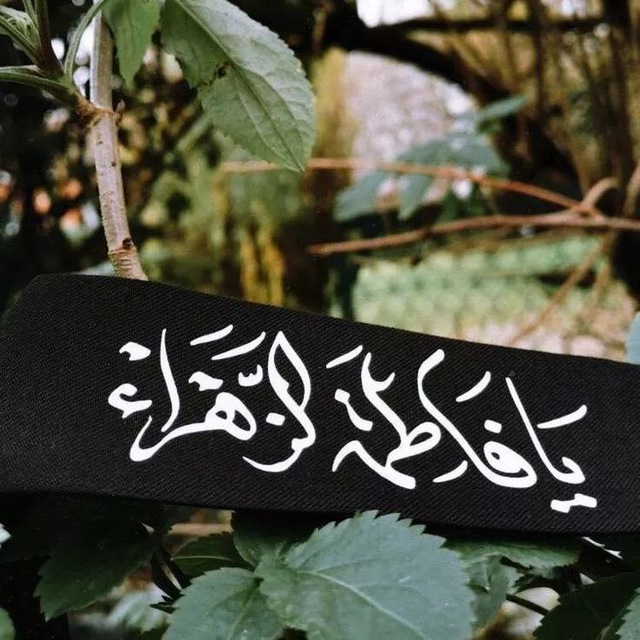 يَا فَاطِمَةَ الزَّهْرَاءِ